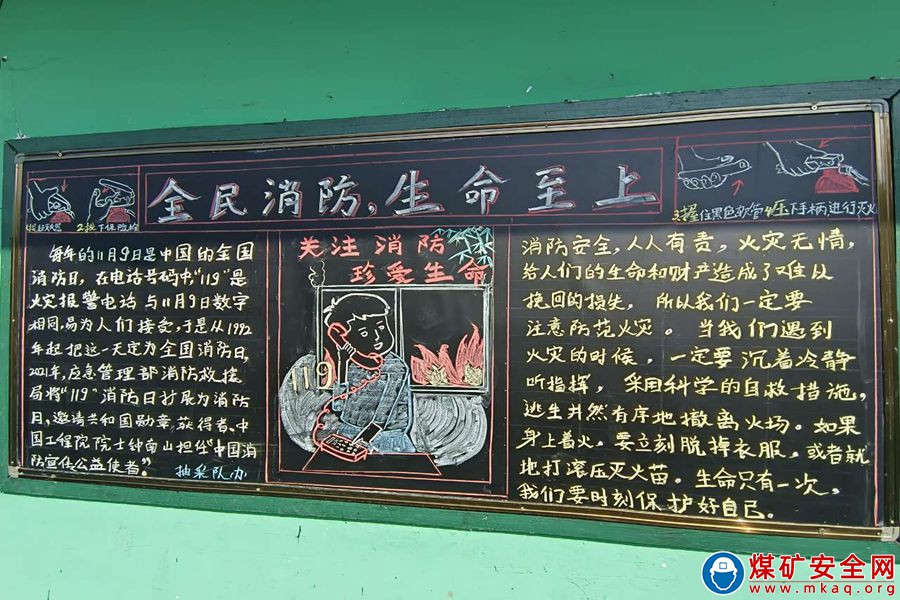 全民消防，生命至上
2.拔下保险栓
3.握住黑色软管
4.压下手柄进行灭火
每年的11月9日是中国的全国
消防日，在电话号码中"119"是
火灾报警电话与11月9日数字
相同，易为人们接受，于是从1992
年起把这一天定为全国消防日，
2021年，应急管理部消防救援
局将"119"消防日扩展为消防
月，邀请共和国勋章获得者、中
国工程院院士钟南山担任"中国消
防宣传公益使者"。
抽采队办
关注消防
珍爱生命
119
消防安全，人人有责，火灾无情，
给人们的生命和财产造成了难以
挽回的损失，所以我们一定要
注意防范火灾。当我们遇到
火灾的时候，一定要沉着冷静
听指挥，采用科学的自救措施，
逃生井然有序地撤离火场。如果
身上着火，要立刻脱掉衣服，或者就
地打滚压灭火苗。生命只有一次，
我们要时刻保护好自己。
煤矿安全网
www.mkaq.org